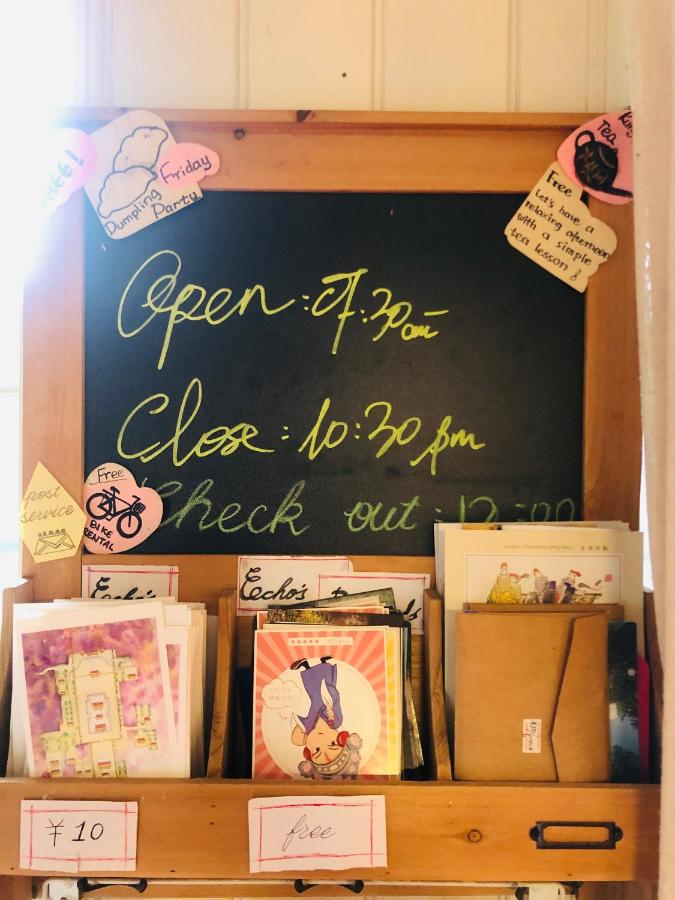 FREE!
Friday
Dumpling
Party
Tea
Free
Let's have a
relaxing afternoon
with a simple
tea lesson
Open: 07:30am
Close: 10:30 pm
Check out: 12:00
post
service
Free
BIKE
RENTAL
Eecho's
Eecho's
¥10
free